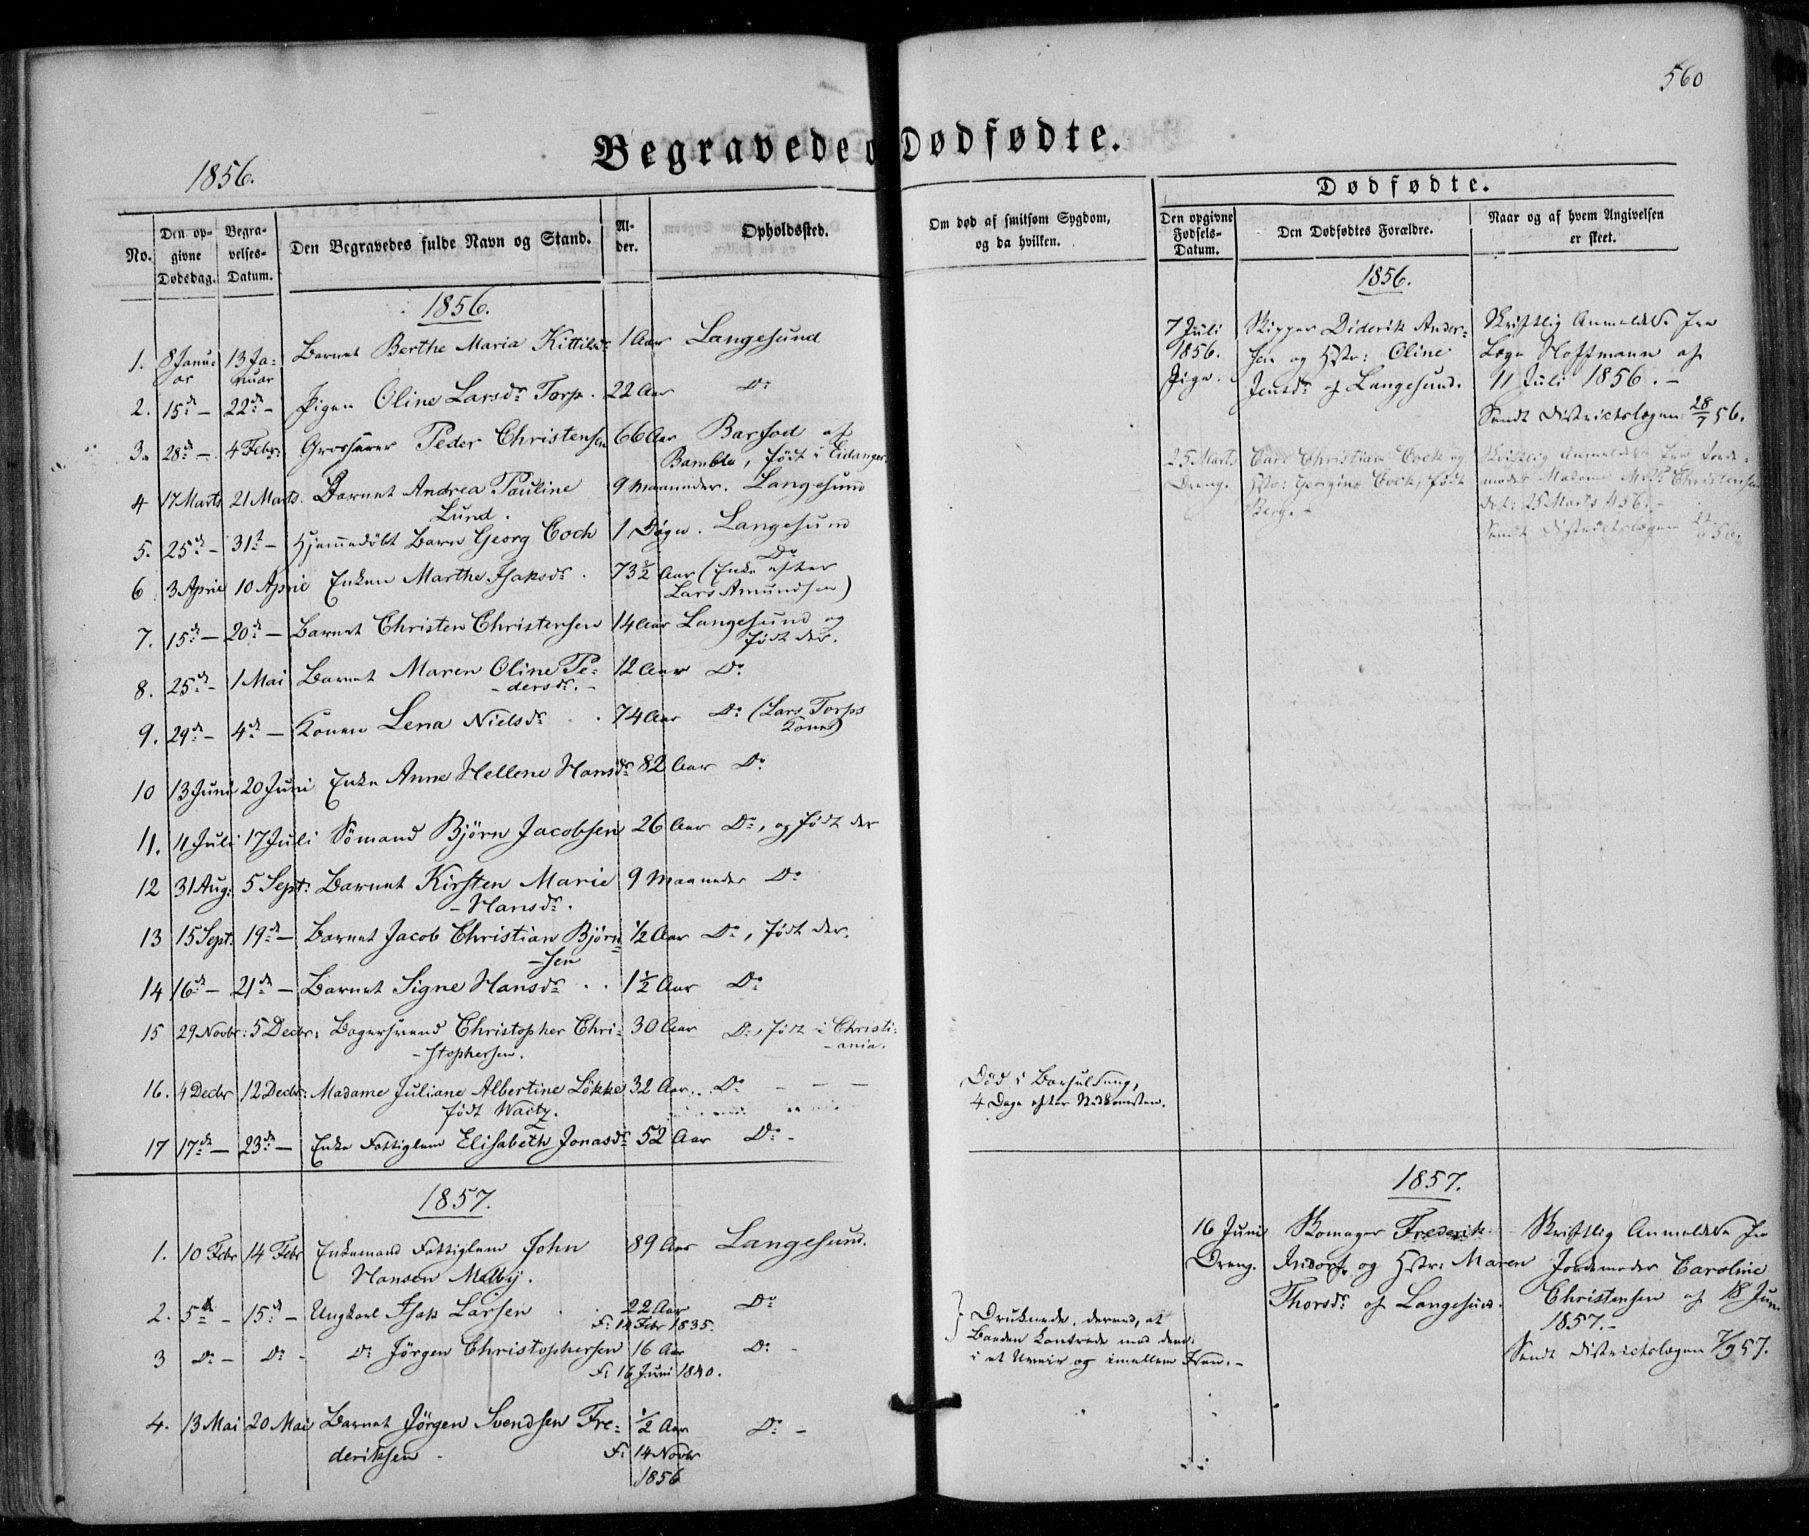 560
Begravede o Dødfødte.
1856.
Dødfødte.
No. Den opgivne Dødsdag. Begravelses-Datum. Den Begravedes fulde Navn og Stand. Alder. Opholdssted.
Om død af smitsom Sygdom, og da hvilken.
Den opgivne Fødsels-Datum. Den Dødfødtes Forældre. Naar og af hvem Angivelsen er skeet.
1856.
1. 8 Januar 13 Januar Barnet Berthe Maria Kittilsdr 1 Aar Langesund
2. 15de — 22de — Pigen Oline Larsdr Torp. 22 Aar Do
3. 28de — 4 Febr: Peder Christensen 66 Aar af
Bamble, født i Eidanger.
4 17 Marts 21 Marts. Barnet Andrea Pauline 9 Maaneder. Langesund
Lund.
5. 25de — 31te — Hjemmedøbt Barn Georg Cock 1 Døgn. Langesund
6 3 April 10 April Enken Marthe Isaksdr. 73 ½ Aar Do (Enke efter
Lars Amundsen)
7. 15de — 20de — Barnet Christen Christensen 14 Aar Langesund og
født der.
8. 25de — 1 Mai Barnet Maren Oline Pe-
dersdr. — 12 Aar Do
9. 29de — 4de — Konen Lena Nielsdr 74 Aar Do (Lars Torps
Kone)
10 13 Juni 20 Juni Enke Anne Hellene Hansdr 82 Aar Do
11. 11 Juli 17 Juli Sømand Bjørn Jacobsen 26 Aar Do, og født der
12 31 Aug: 5 Sept: Barnet Kirsten Marie 9 Maaneder Do
— Hansdr.
13 15 Sept: 19de — Barnet Jacob Christian Bjørn-
sen ½ Aar Do, født der.
14 16de — 21de — Barnet Signe Hansdr . . 1½ Aar Do
15 29 Novbr: 5 Decbr: Bagersvend Christopher Chri-
stophersen. 30 Aar Do, født i Christi-
ania.
16. 4 Decbr 12 Decbr: Madame Juliane Albertine Løkke 32 Aar.. Do — — —
født
Død i Barselseng,
4 Dage efter Nedkomsten.
17 17de — 23de — Enke Fattiglem Elisabeth Jonasdr 52 Aar Do —
1857.
1. 10 Febr 14 Febr Enkemand Fattiglem John 89 Aar Langesund.
Hansen Melby.
2. 5te — 15de — Ungkarl Isak Larsen . . 22 Aar Do
F: 14 Febr 1835.
3 Do — Do — Do Jørgen Christophersen 16 Aar Do —
F: 16 Juni 1840.
Druknede, derved, at
Baaden kantrede med dem
i et Uveir og imellem Iisen. —
4. 13 Mai 20 Mai Barnet Jørgen Svendsen Fre-
deriksen. ½ Aar Do —
F: 14 Novbr
1856
1856.
7 Juli Skipper Diderik Ander- Skriftlig Anmeldelse fra
1856. sen og Hstr: Oline Læge Hoffmann af
Pige. Jensdr af Langesund. 11 Juli 1856. —
Sendt Districtslægen 28/7 56.
25 Marts Carl Christian Cock og Skriftlig Anmeldelse fra Jorde-
Dreng. Hstr: Cock, født moder Madame Christensen
Berg. — dat: 25 Marts 1856. —
Sendt Districtslægen
1857.
16 Juni Skomager Frederik Skriftlig Anmeldelse fra
Dreng. og Hstr: Maren Jordemoder Caroline
Thorsdr af Langesund. Christensen af 18 Juni
1857. —
Sendt Districtslægen 7/9 57.